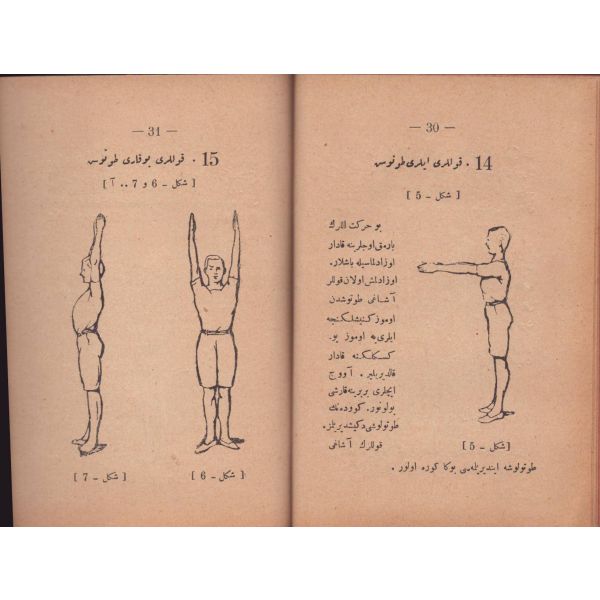 — 30 —
14 . قوللری ایلری طوتوس
[ شکل ـ 5 ]
بو حرکت اللرك
پارمق اوجلرینه قادار
اوزادلماسیله باشلار.
اوزادلمش اولان قوللر
آشاغی طوتوشدن
اوموز کنیشلکنجه
ایلری یه اوموز یو.
کسکلکنه قادار
قالدیریلیر . آووج
ایچلری بربرینه قارشی
بولونور. کووده نك
طوتولوشی دکیشدیریلمز.
قوللرك آشاغی
طوتولوشه ایندیریلمه سی بوکا کوره اولور .
[ شکل ـ 5 ]
— 31 —
15 . قوللری یوقاری طوتوس
[ شکل ـ 6 و 7 .. آ ]
[ شکل ـ 6 ]
[ شکل ـ 7 ]